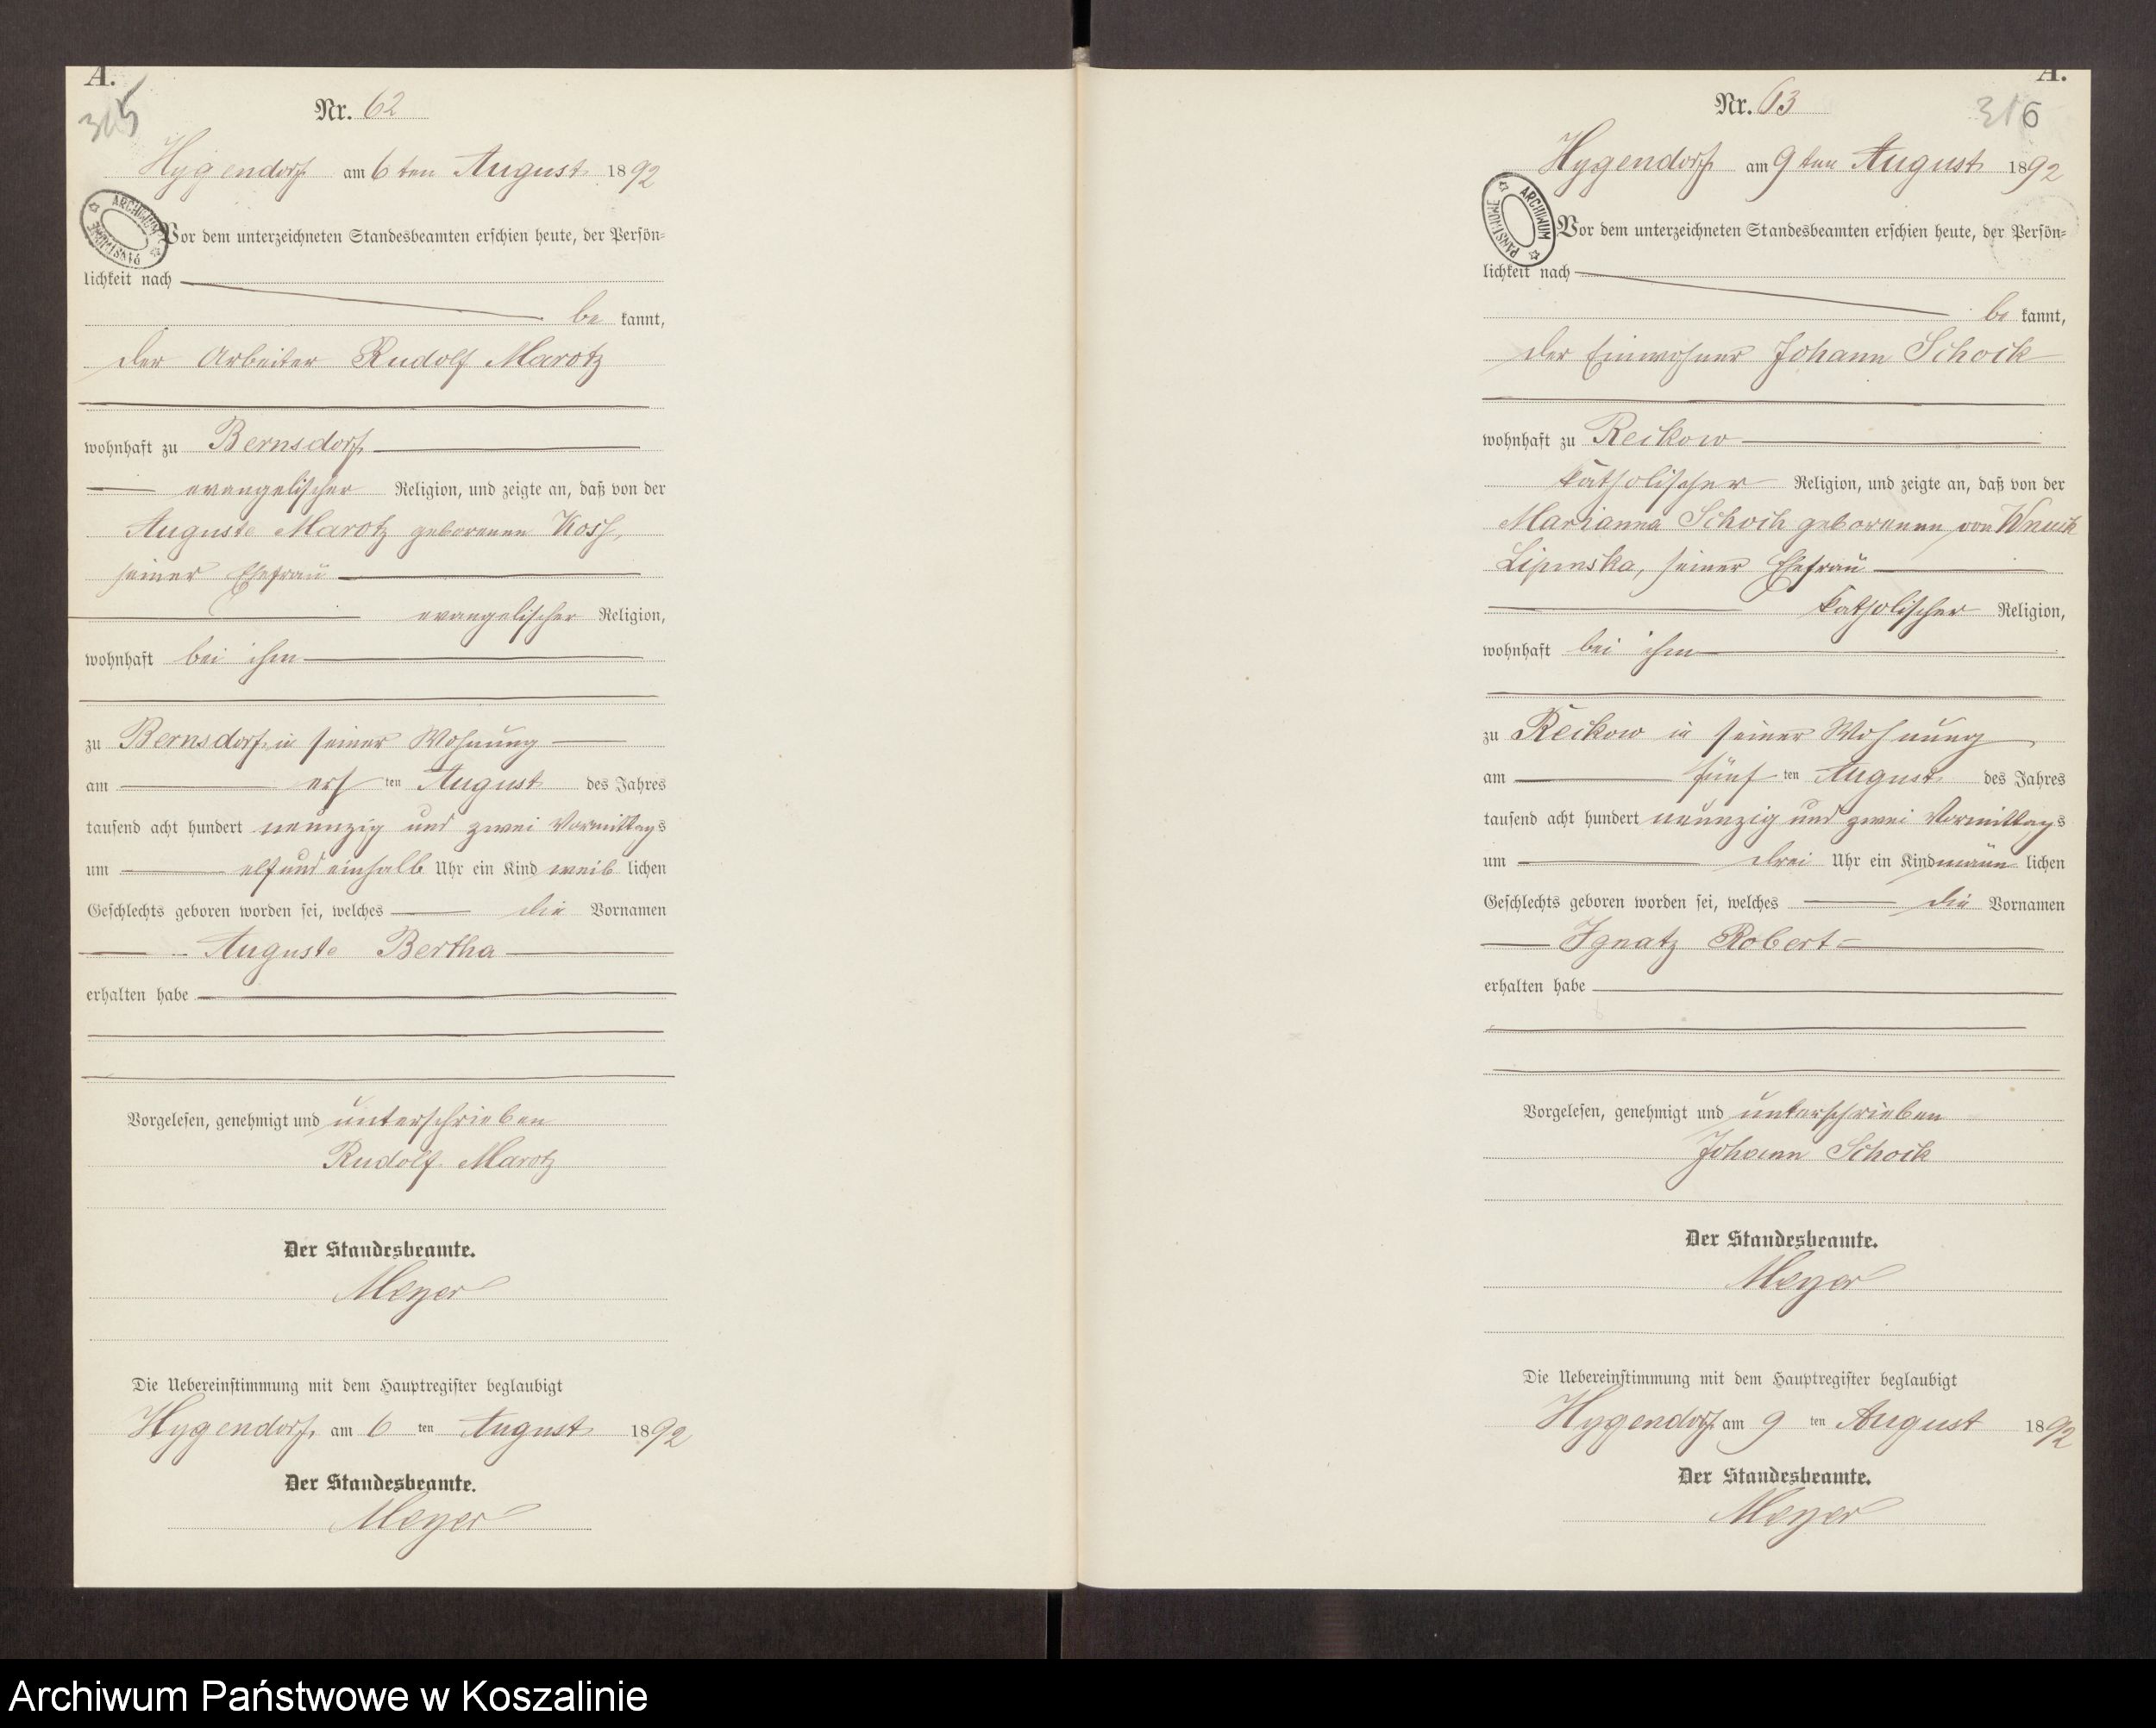 A.
315
Nr. 62
Hygendorf am 6ten August 1892
ARCHIWUM PAŃSTWOWE
Vor dem unterzeichneten Standesbeamten erschien heute, der Persön-
lichkeit nach
be kannt,
der Arbeiter Rudolf Marotz
wohnhaft zu Bernsdorf
evangelischer Religion, und zeigte an, daß von der
Auguste Marotz geborenen Koss,
seiner Ehefrau
evangelischer Religion,
wohnhaft bei ihm
zu Bernsdorf in seiner Wohnung
am ers ten August des Jahres
tausend acht hundert neunzig und zwei Vormittags
um elf und einhalb Uhr ein Kind weib lichen
Geschlechts geboren worden sei, welches die Vornamen
Auguste Bertha
erhalten habe
Vorgelesen, genehmigt und unterschrieben
Rudolf Marotz
Der Standesbeamte.
Meyer
Die Uebereinstimmung mit dem Hauptregister beglaubigt
Hygendorf, am 6 ten August 1892
Der Standesbeamte.
Meyer
A.
316
Nr. 63
Hygendorf am 9ten August 1892
ARCHIWUM PAŃSTWOWE
Vor dem unterzeichneten Standesbeamten erschien heute, der Persön-
lichkeit nach
be kannt,
der Einwohner Johann Schock
wohnhaft zu Reckow
katholischer Religion, und zeigte an, daß von der
Marianna Schock geborenen von Wnuck
Lipinska, seiner Ehefrau
katholischer Religion,
wohnhaft bei ihm
zu Reckow in seiner Wohnung
am fünf ten August des Jahres
tausend acht hundert neunzig und zwei Vormittags
um drei Uhr ein Kind männ lichen
Geschlechts geboren worden sei, welches die Vornamen
Ignatz Robert
erhalten habe
Vorgelesen, genehmigt und unterschrieben
Johann Schock
Der Standesbeamte.
Meyer
Die Uebereinstimmung mit dem Hauptregister beglaubigt
Hygendorf am 9 ten August 1892
Der Standesbeamte.
Meyer
Archiwum Państwowe w Koszalinie